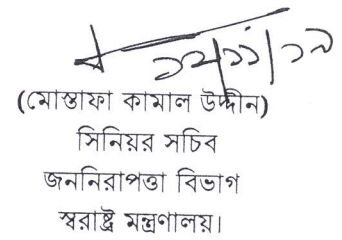 ১২/১১/১৯
(মোস্তাফা কামাল উদ্দীন)
সিনিয়র সচিব
জননিরাপত্তা বিভাগ
স্বরাষ্ট্র মন্ত্রণালয়।